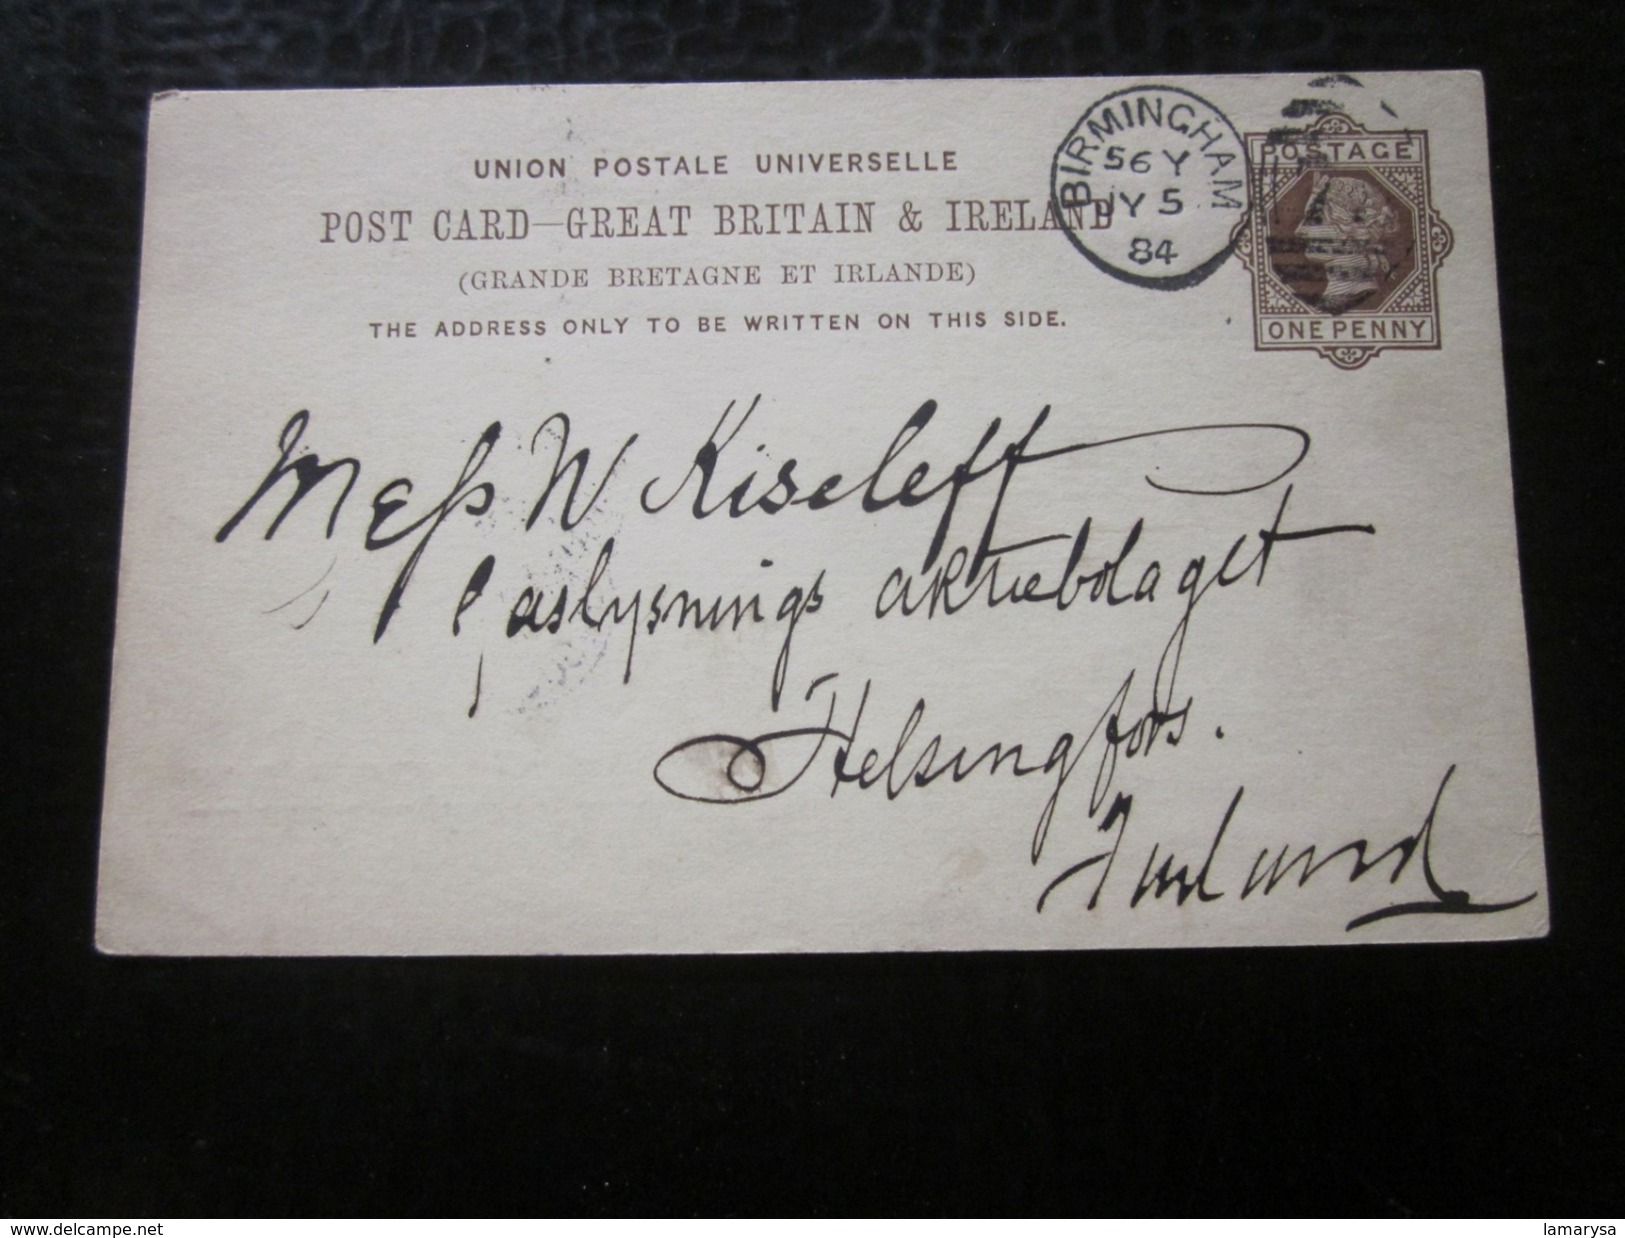 UNION POSTALE UNIVERSELLE
POST CARD—GREAT BRITAIN & IRELAND
(GRANDE BRETAGNE ET IRLANDE)
THE ADDRESS ONLY TO BE WRITTEN ON THIS SIDE.
BIRMINGHAM
56 Y
JY 5
84
POSTAGE
ONE PENNY
Mess W Kiseleff
Gaslysnings aktiebolaget
Helsingfors.
Finland
www.delcampe.net
lamarysa